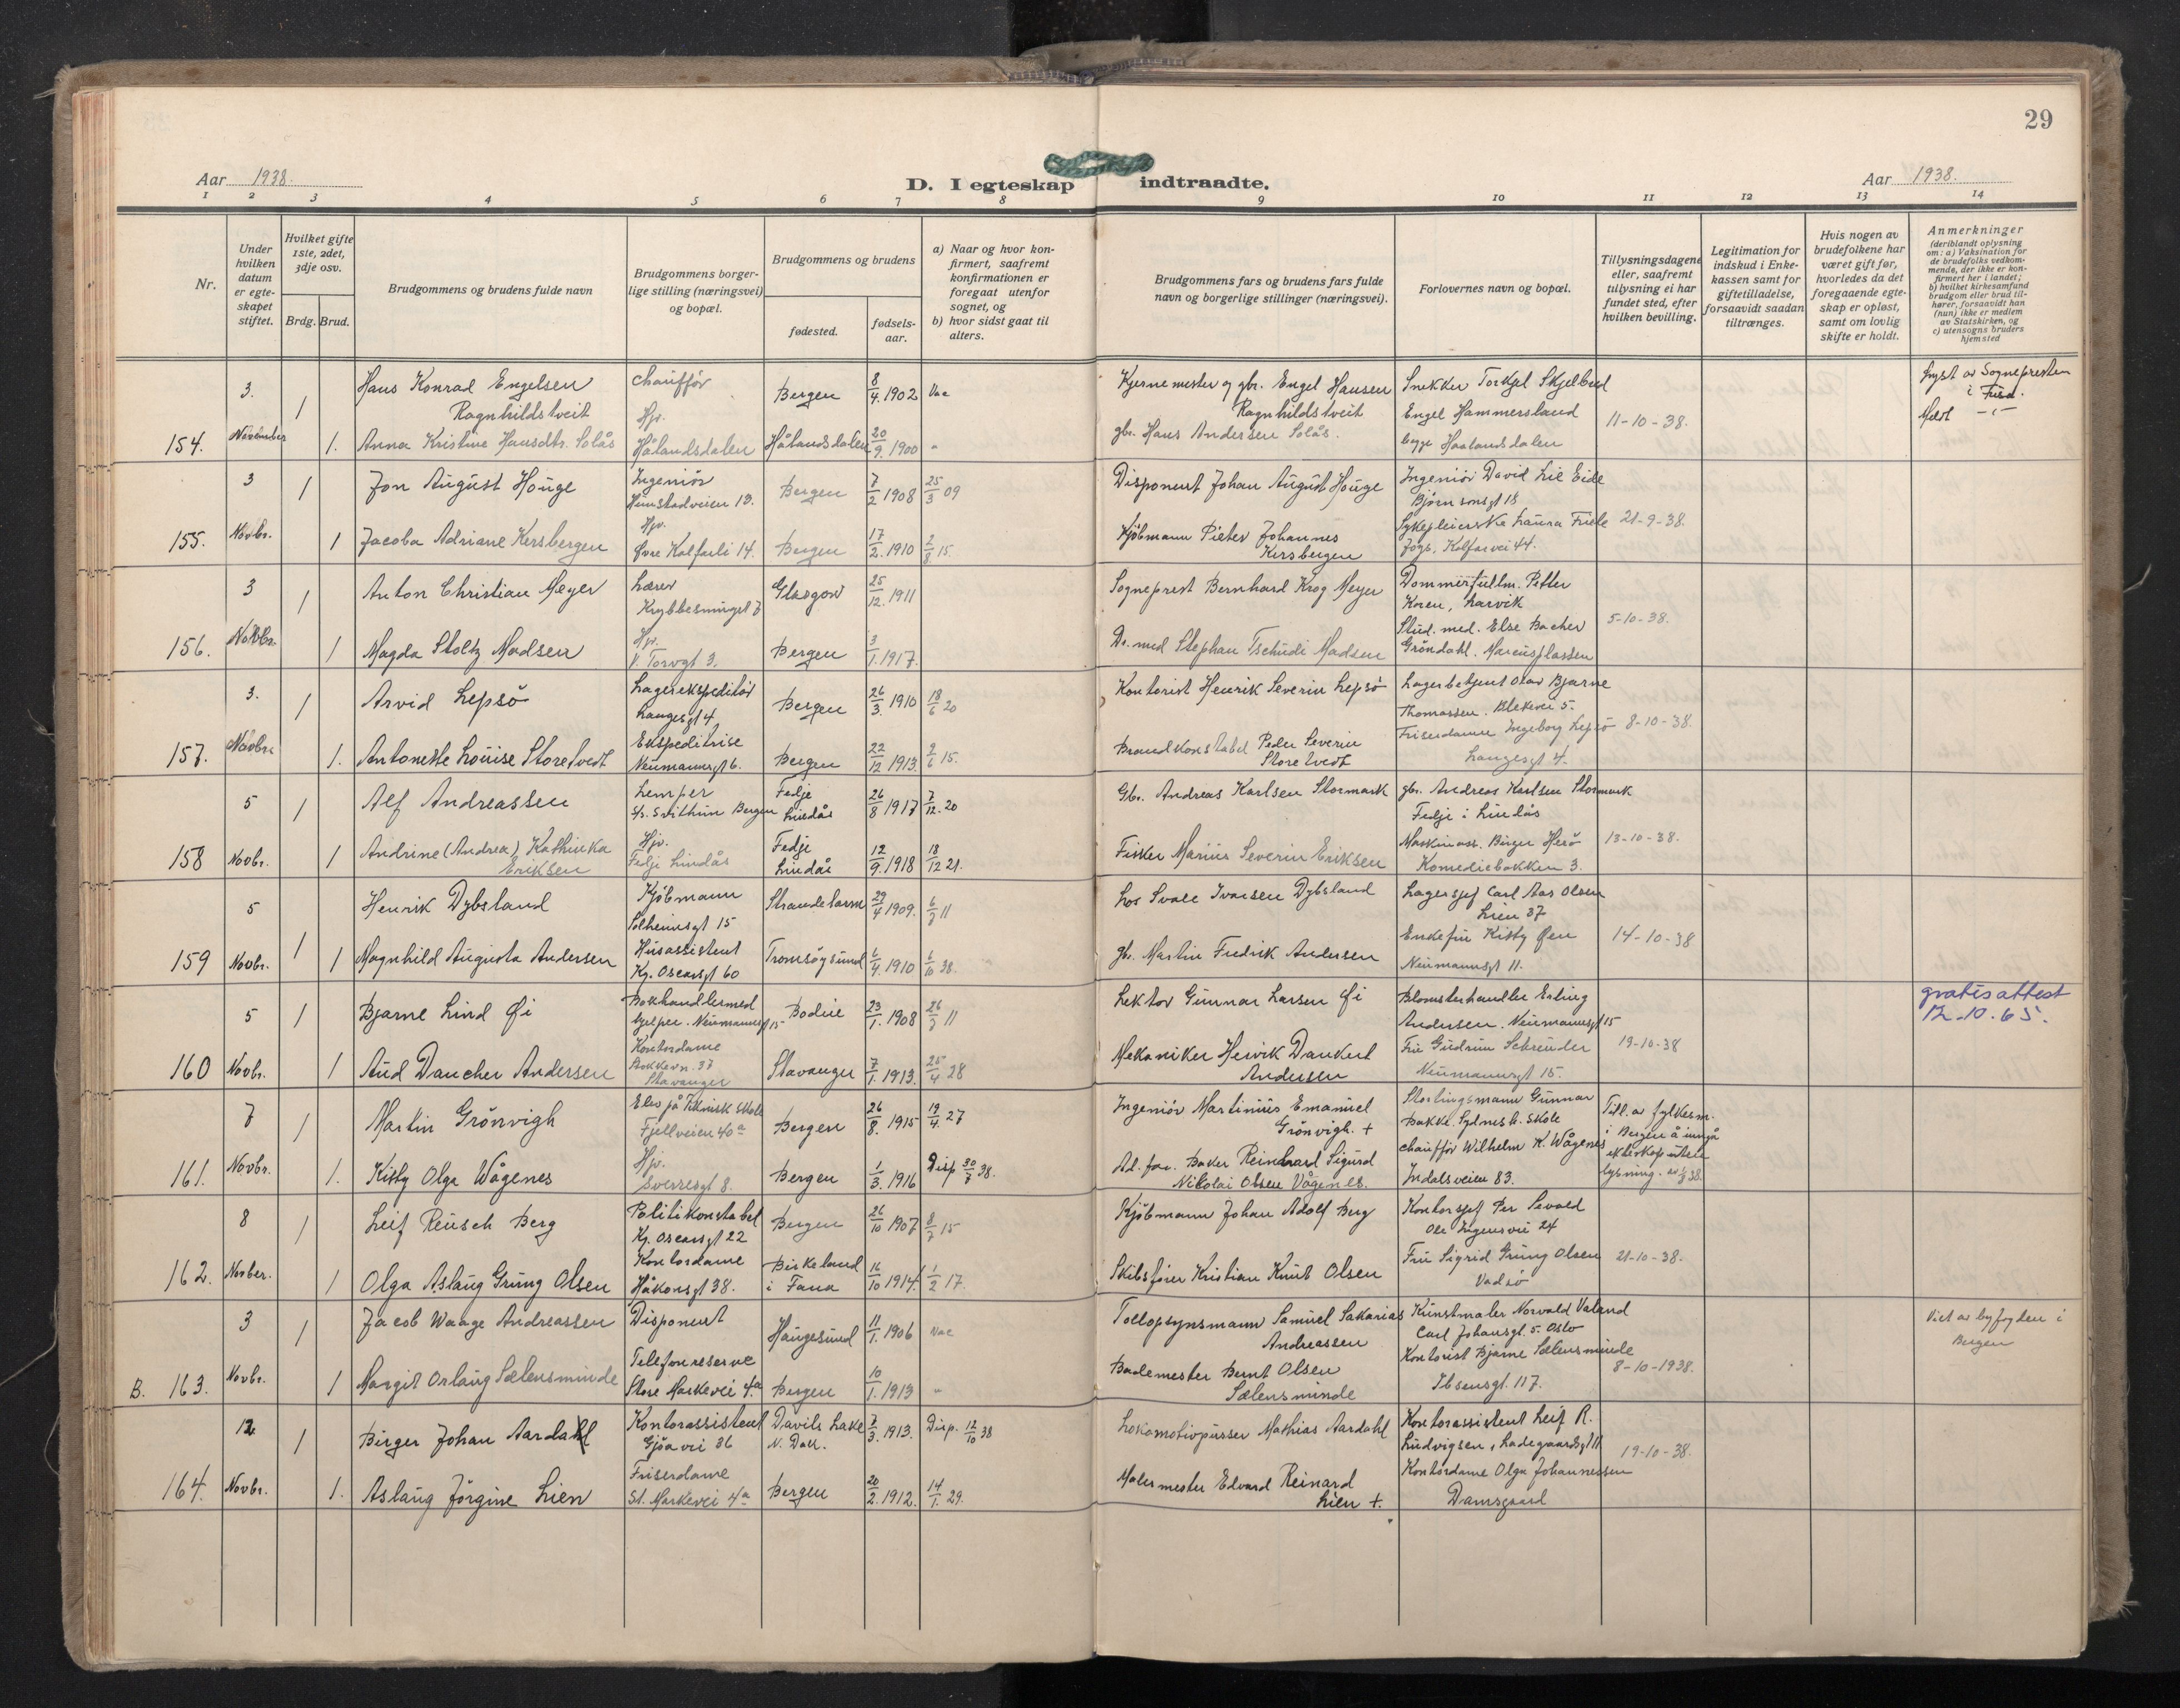 29
Aar 1938.
D. I egteskap indtraadte.
Aar 1938.
1 2 3 4 5 6 7 8 9 10 11 12 13 14
Nr.
Under hvilken datum er egteskapet stiftet.
Hvilket gifte 1ste, 2det, 3dje osv.
Brdg. Brud.
Brudgommens og brudens fulde navn
Brudgommens borgerlige stilling (næringsvei) og bopæl.
Brudgommens og brudens
fødested.
fødselsaar.
a) Naar og hvor konfirmert, saafremt konfirmationen er foregaat utenfor sognet, og
b) hvor sidst gaat til alters.
Brudgommens fars og brudens fars fulde navn og borgerlige stillinger (næringsvei).
Forlovernes navn og bopæl.
Tillysningsdagene eller, saafremt tillysning ei har fundet sted, efter hvilken bevilling.
Legitimation for indskud i Enkekassen samt for giftetilladelse, forsaavidt saadan tiltrænges.
Hvis nogen av brudefolkene har været gift før, hvorledes da det foregaaende egteskap er opløst, samt om lovlig skifte er holdt.
Anmerkninger
(deriblandt oplysning om: a) Vaksination for de brudefolks vedkommende, der ikke er konfirmert her i landet; b) hvilket kirkesamfund brudgom eller brud tilhører, forsaavidt han (hun) ikke er medlem av Statskirken, og c) utensogns bruders hjemsted
3. 1 Hans Konrad Engelsen Ragnhildstveit chauffør Bergen 8/4. 1902 Vac Engel Hansen Ragnhildstveit Torkjel Skjelbred av Sognepresten i Fusa.
154. November 1. Anna Kristine Hansdtr. Solås Hjv. Hålandsdalen Hålandsdalen 20/9. 1900 " gbr. Hans Andersen Solås. Engel Hammersland begge Haalandsdalen 11-10-38.
3 1 Jon August Houge Ingeniør Bergen 7/2 1908 25/3 09 Disponent Johan August Houge Ingeniør David Lie Eide Bjørnsonsgt 18
155. Novbr. 1 Jacoba Adriane Kersbergen Hjv. Øvre Kalfarli 14. Bergen 17/2. 1910 2/8 15. Kjøbmann Pieter Johannes Kersbergen Sykepleierske Laura Friele Kalfarvei 44. 21-9-38.
3 1 Anton Christian Meyer Lærer Glasgow 25/12. 1911 Sogneprest Bernhard Krog Meyer Dommerfullm. Petter Koren, Larvik
156. Novbr. 1 Magda Stoltz Madsen Hjv. V. Torvgt 3. Bergen 3/1. 1917. Dr. med Stephan Tschudi Madsen Stud. med. Else Bacher Grøndahl. Marcusplassen 5-10-38.
3. 1 Arvid Lepsö Lagerekspeditør Langesgt 4 Bergen 26/3. 1910 18/6 20 Kontorist Henrik Severin Lepsö Lagerbetjent Olav Bjarne Thomassen. Blekevei 5.
157. Novbr. 1. Antonette Louise Storetvedt Ekspeditrise Neumannsgt 6. Bergen 22/12 1913. 2/6 15. Brandkonstabel Peder Severin Storetvedt Friserdame Ingeborg Lepsö Langesgt 4. 8-10-38.
5 1 Alf Andreassen Lemper S/s. Svithun Bergen Fedje Lindås 26/8 1917 7/12. 20 Gbr. Andreas Karlsen Stormark gbr. Andreas Karlsen Stormark Fedje i Lindås
158 Novbr. 1 Andrine (Andrea) Kathinka Eriksen Hjv. Fedje Lindås Fedje Lindås 12/9. 1918 18/12 21. Fisker Marius Severin Eriksen Maskinass. Birger Herö Komediebakken 3. 13-10-38.
5 1 Henrik Dybsland Kjøbmann Solheimsgt 15 Strandebarm 29/4 1909. 6/7 11 Los Svale Ivarsen Dybsland Lagersjef Carl Aas Olsen Lien 37
159 Novbr. 1 Magnhild Augusta Andersen Husassistent Kg. Oscarsgt 60 Tromsøysund 6/4. 1910 6/10 38. gbr. Martin Fredrik Andersen Enkefru Kitty Øen Neumannsgt 11. 14-10-38
5 1 Bjarne Lind Øi Bokhandlermedhjelper. Neumannsgt 15 Bodin 23/1. 1908 26/7 11 Lektor Gunnar Larsen Øi Blomsterhandler Erling Andersen. Neumannsgt 15 gratisattest 12-10.65.
160 Novbr. 1 Aud Dancher Andersen Kontordame Stavanger Stavanger 7/1. 1913. 25/4 28 Mekaniker Henrik Dankert Andersen Fru Gudrun Schrøder Neumannsgt 15. 19-10-38
7 1 Martin Grönvigh Elev på Teknisk skole Fjellveien 40a Bergen 26/8. 1915 19/4. 27 Ingeniör Martinius Emanuel Grönvigh. + Stortingsmann Gunnar Bakke. Sydnesh. skole Till. av fylkesm. i Bergen å inngå ekteskap uten lysning.
161. Novbr. 1. Kitty Olga Wågenes Hjv. Sverresgt 8. Bergen 1/3. 1916 Disp 30/7 38. Ad. far. Baker Reinhard Sigurd Nikolai Olsen Vågenes. chauffør Wilhelm K. Wågenes Indalsveien 83.
8 1 Leif Reusch Berg Politikonstabel Kg. Oscarsgt 22 Bergen 26/10 1907 8/7 15 Kjöbmann Johan Adolf Berg Kontorsjef Per Sevald Ole Irgensvei 24
162. Novber. 1 Olga Aslaug Grung Olsen Kontordame Håkonsgt 38. Birkeland i Fana 16/10 1914. 1/2 17. Skibsfører Kristian Knut Olsen Fru Sigrid Grung Olsen Vadsö 21-10-38.
3 1 Jacob Waage Andreassen Disponent Haugesund 11/1. 1906 Vac Tollopsynsmann Samuel Sakarias Andreassen Kunstmaler Norvald Valand Carl Johansgt. 5. Oslo Viet av byfogden i Bergen
B. 163. Novbr. 1 Margit Orlaug Sælensminde Telefonreserve Store Markevei 4a Bergen 10/1. 1913 " Bademester Bernt Olsen Sælensminde Kontorist Bjarne Sælensminde Ibsensgt. 117. 8-10-1938.
12 1 Birger Johan Aardahl Kontorassistent Gjøavei 36 Davils Lake N. Dak. 7/3. 1913. Disp. 12/10 38 Lokomotivpusser Mathias Aardahl Kontorassistent Leif R. Ludvigsen, Ladegaardsgt 11
164. Novbr. 1. Aslaug Jörgine Lien Friserdame St. Markevei 4a Bergen 20/2. 1912. 14/1. 29. Malermester Edvard Reinard Lien +. Kontordame Olga Johannessen Damsgaard 19-10-38.